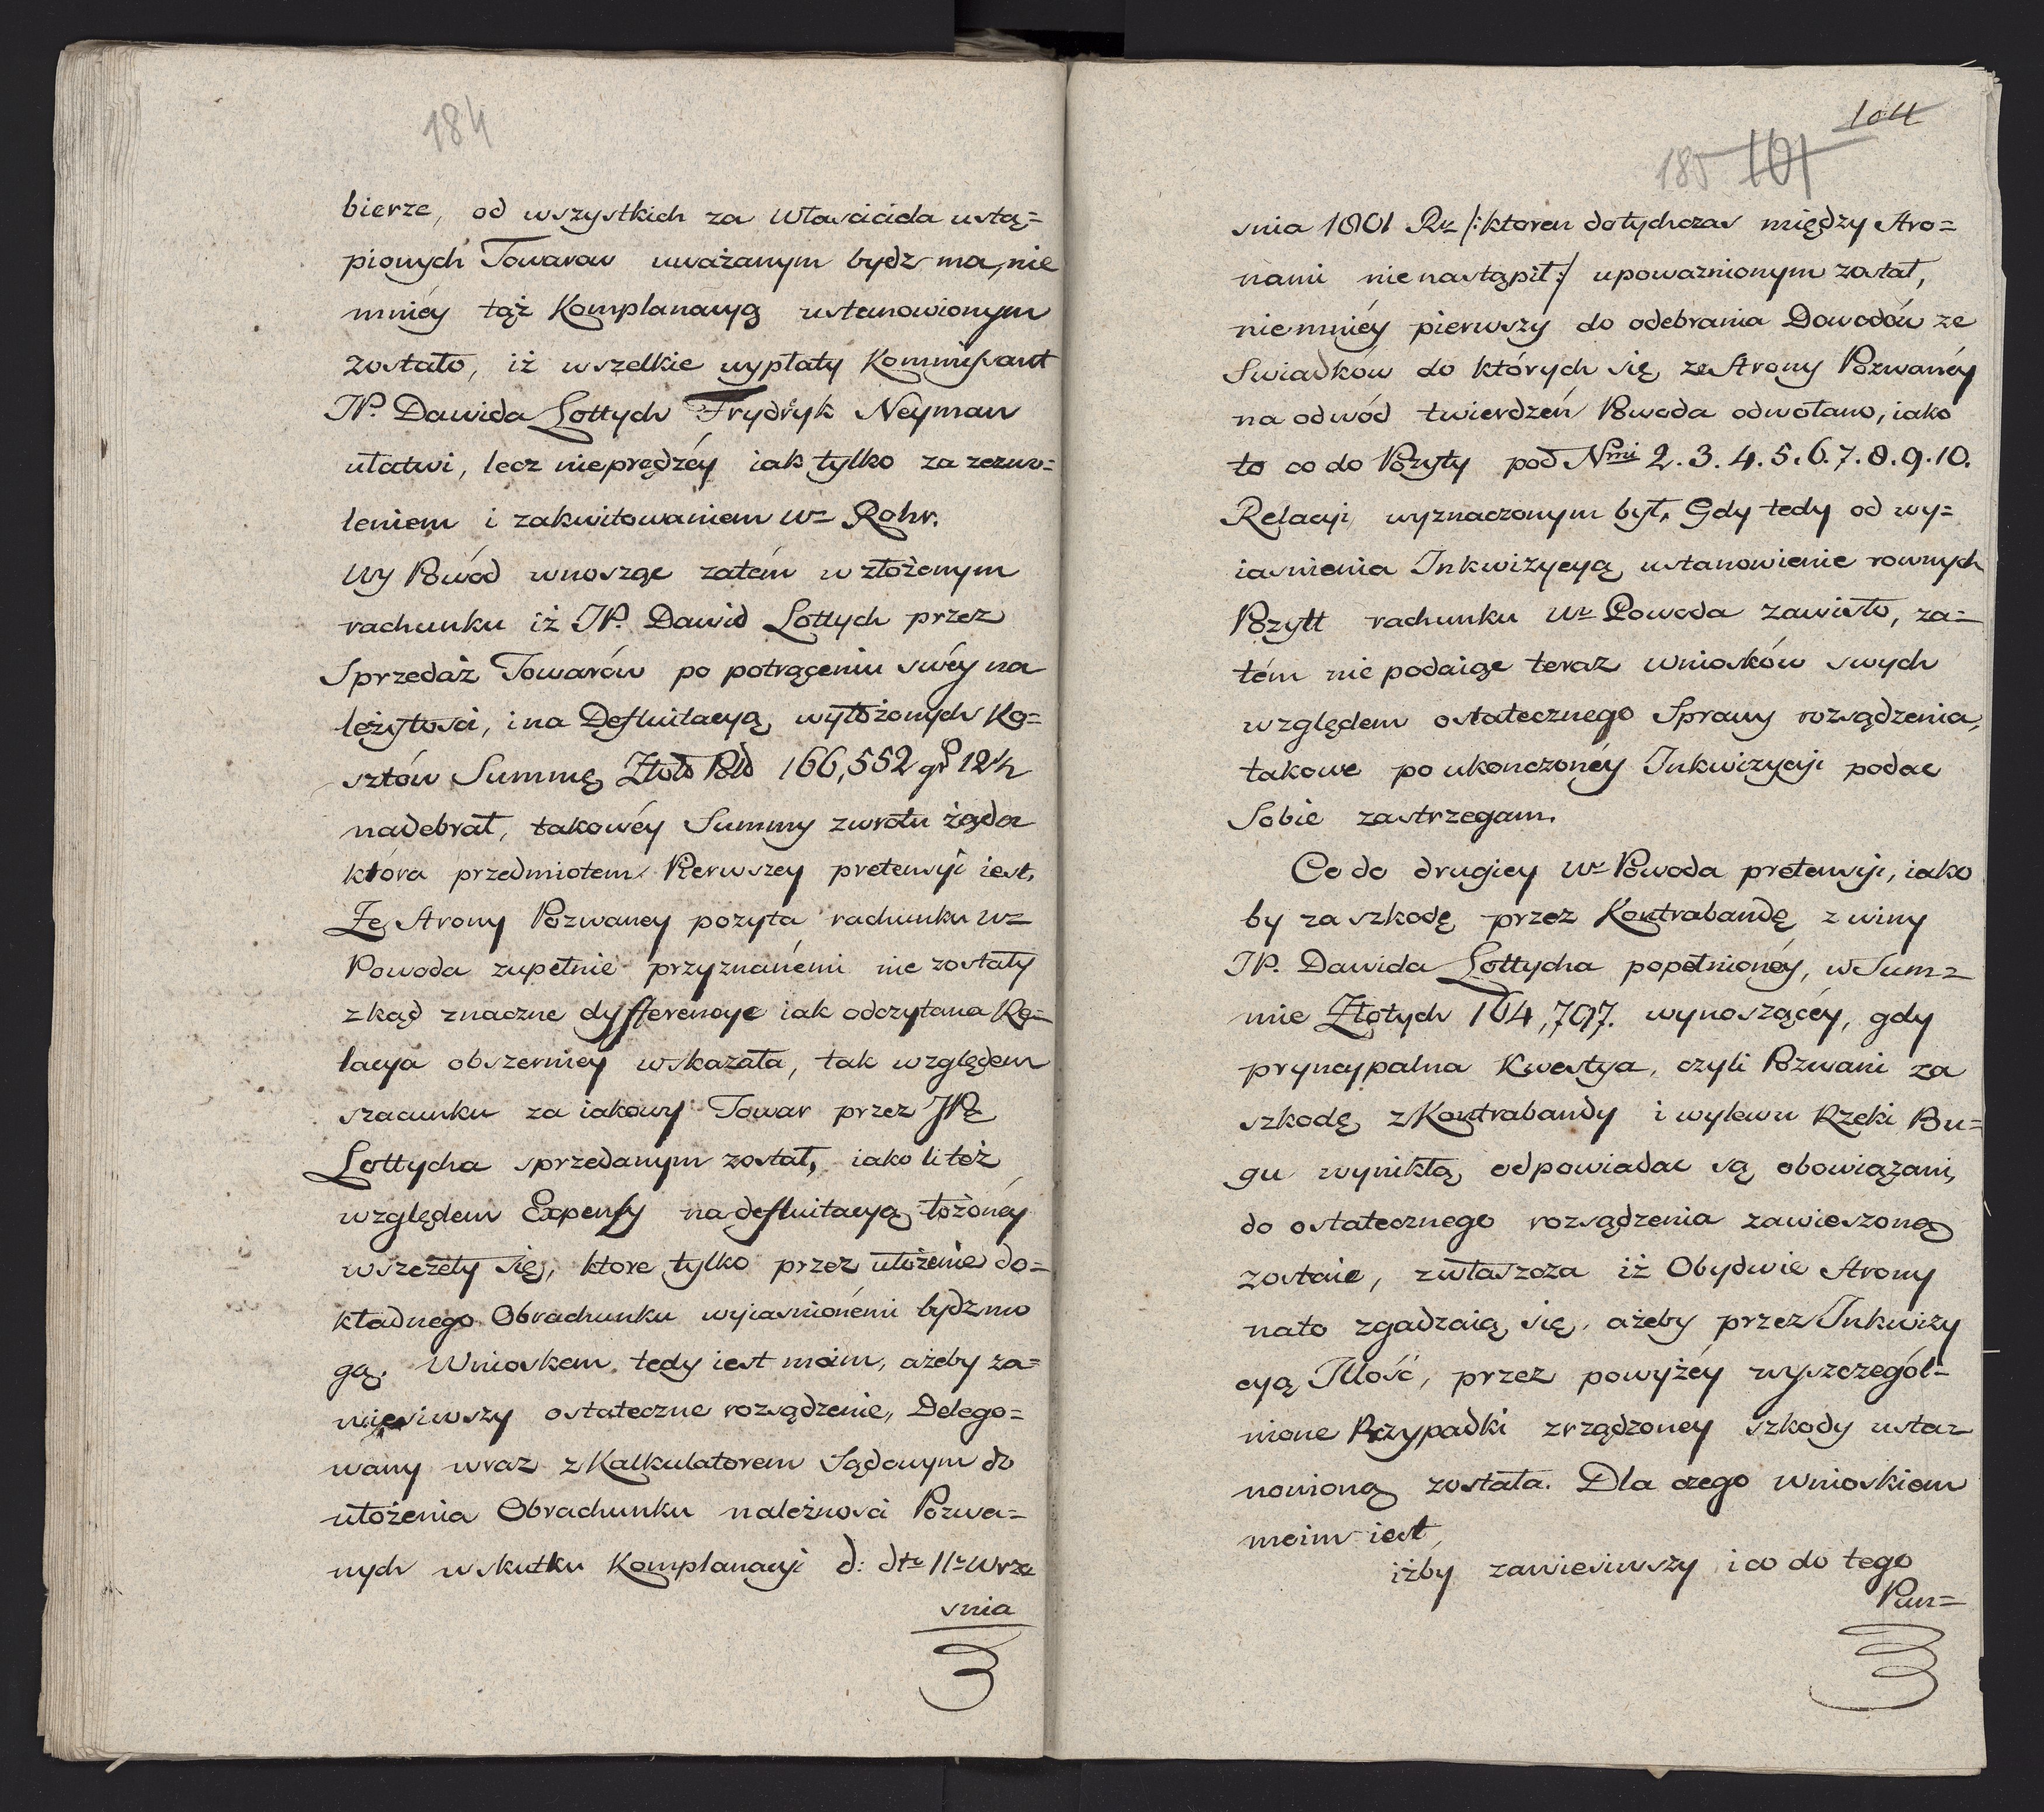 184
bierze, od wszystkich za własciciela ustą=
pionych Towarow uważanym bydz ma, nie
mniéy tąż Komplanacyą ustanowionym
zostało, iż wszelkie wypłaty Kommissant
JP. Dawida Lottych Frydryk Neyman
ułatwi, lecz nieprędzéy iak tylko za zezwo=
leniem i zakwitowaniem Wo Rohr.
Wy Powód wnosząc zatém w złożonym
rachunku iż JP. Dawid Lottych przez
Sprzedaż Towarów po potrąceniu swéy na
leżytosci, i na Defluitacyą wyłożonych Ko=
sztów Summę Złotd Pold 166,552 gr 12½
nadebrał, takowéy Summy zwrotu żąda
która przedmiotem Pierwszey pretensyi iest.
Ze Strony Pozwaney pozyta rachunku Wo
Powoda zupełnie przyznanémi nie zostały
zkąd znaczne dyfferencye iak odczytana Re=
lacya obszerniey wskazała, tak względem
szacunku za iakowy Towar przez JPa
Lottycha sprzedanym został, iako li też
względem Expensy na defluitacyą łożonéy
wszczęły się, ktore tylko przez ułożenie do=
kładnego Obrachunku wyiasnionémi bydz mo
gą. Wnioskem tedy iest moim, ażeby za=
wiesiwszy ostateczne rozsądzenie, Delego=
wany wraz z Kalkulatorem Sądowym do
ułożenia Obrachunku należnosci Pozwa=
nych w skutku Komplanacyi d: dto 11o Wrze
snia
104
185 101
snia 1801 Ru /: ktoren dotychczas między Stro=
nami nie nastąpił :/ upoważnionym został,
niemniéy pierwszy do odebrania Dowodów ze
Swiadków do których się ze Strony Pozwanéy
na odwód twierdzeń Powoda odwołano, iako
to co do Pozyty pod Nmi 2. 3. 4. 5. 6. 7. 8. 9. 10.
Relacyi wyznaczonym był. Gdy tedy od wy=
iasnienia Inkwizycyą ustanowienie rownych
Pozytt rachunku Wo Powoda zawisło, za=
tém nie podaiąc teraz wniosków swych
względem ostatecznego Sprawy rozsądzenia,
takowe po ukonczonéy Inkwizycyi podac
Sobie zastrzegam.
Co do drugiey Wo Powoda pretensyi, iako
by za szkodę przez Kontrabandę z winy
JP. Dawida Lottycha popełnionéy, w Sum=
mie Złotych 104,797. wynoszącéy, gdy
pryncypalna Kwestya, czyli Pozwani za
szkodę z Kontrabandy i wylewu Rzeki Bu=
gu wynikłą odpowiadac są obowiązani,
do ostatecznego rozsądzenia zawieszoną
zostaie, zwłaszcza iż Obydwie Strony
na to zgadzaią się, ażeby przez Inkwizy
cyą Ilość, przez powyżéy wyszczegól=
nione Przypadki zrządzoney szkody usta=
nowioną została. Dla czego wnioskiem
moim iest,
iżby zawiesiwszy i co do tego
Pun=